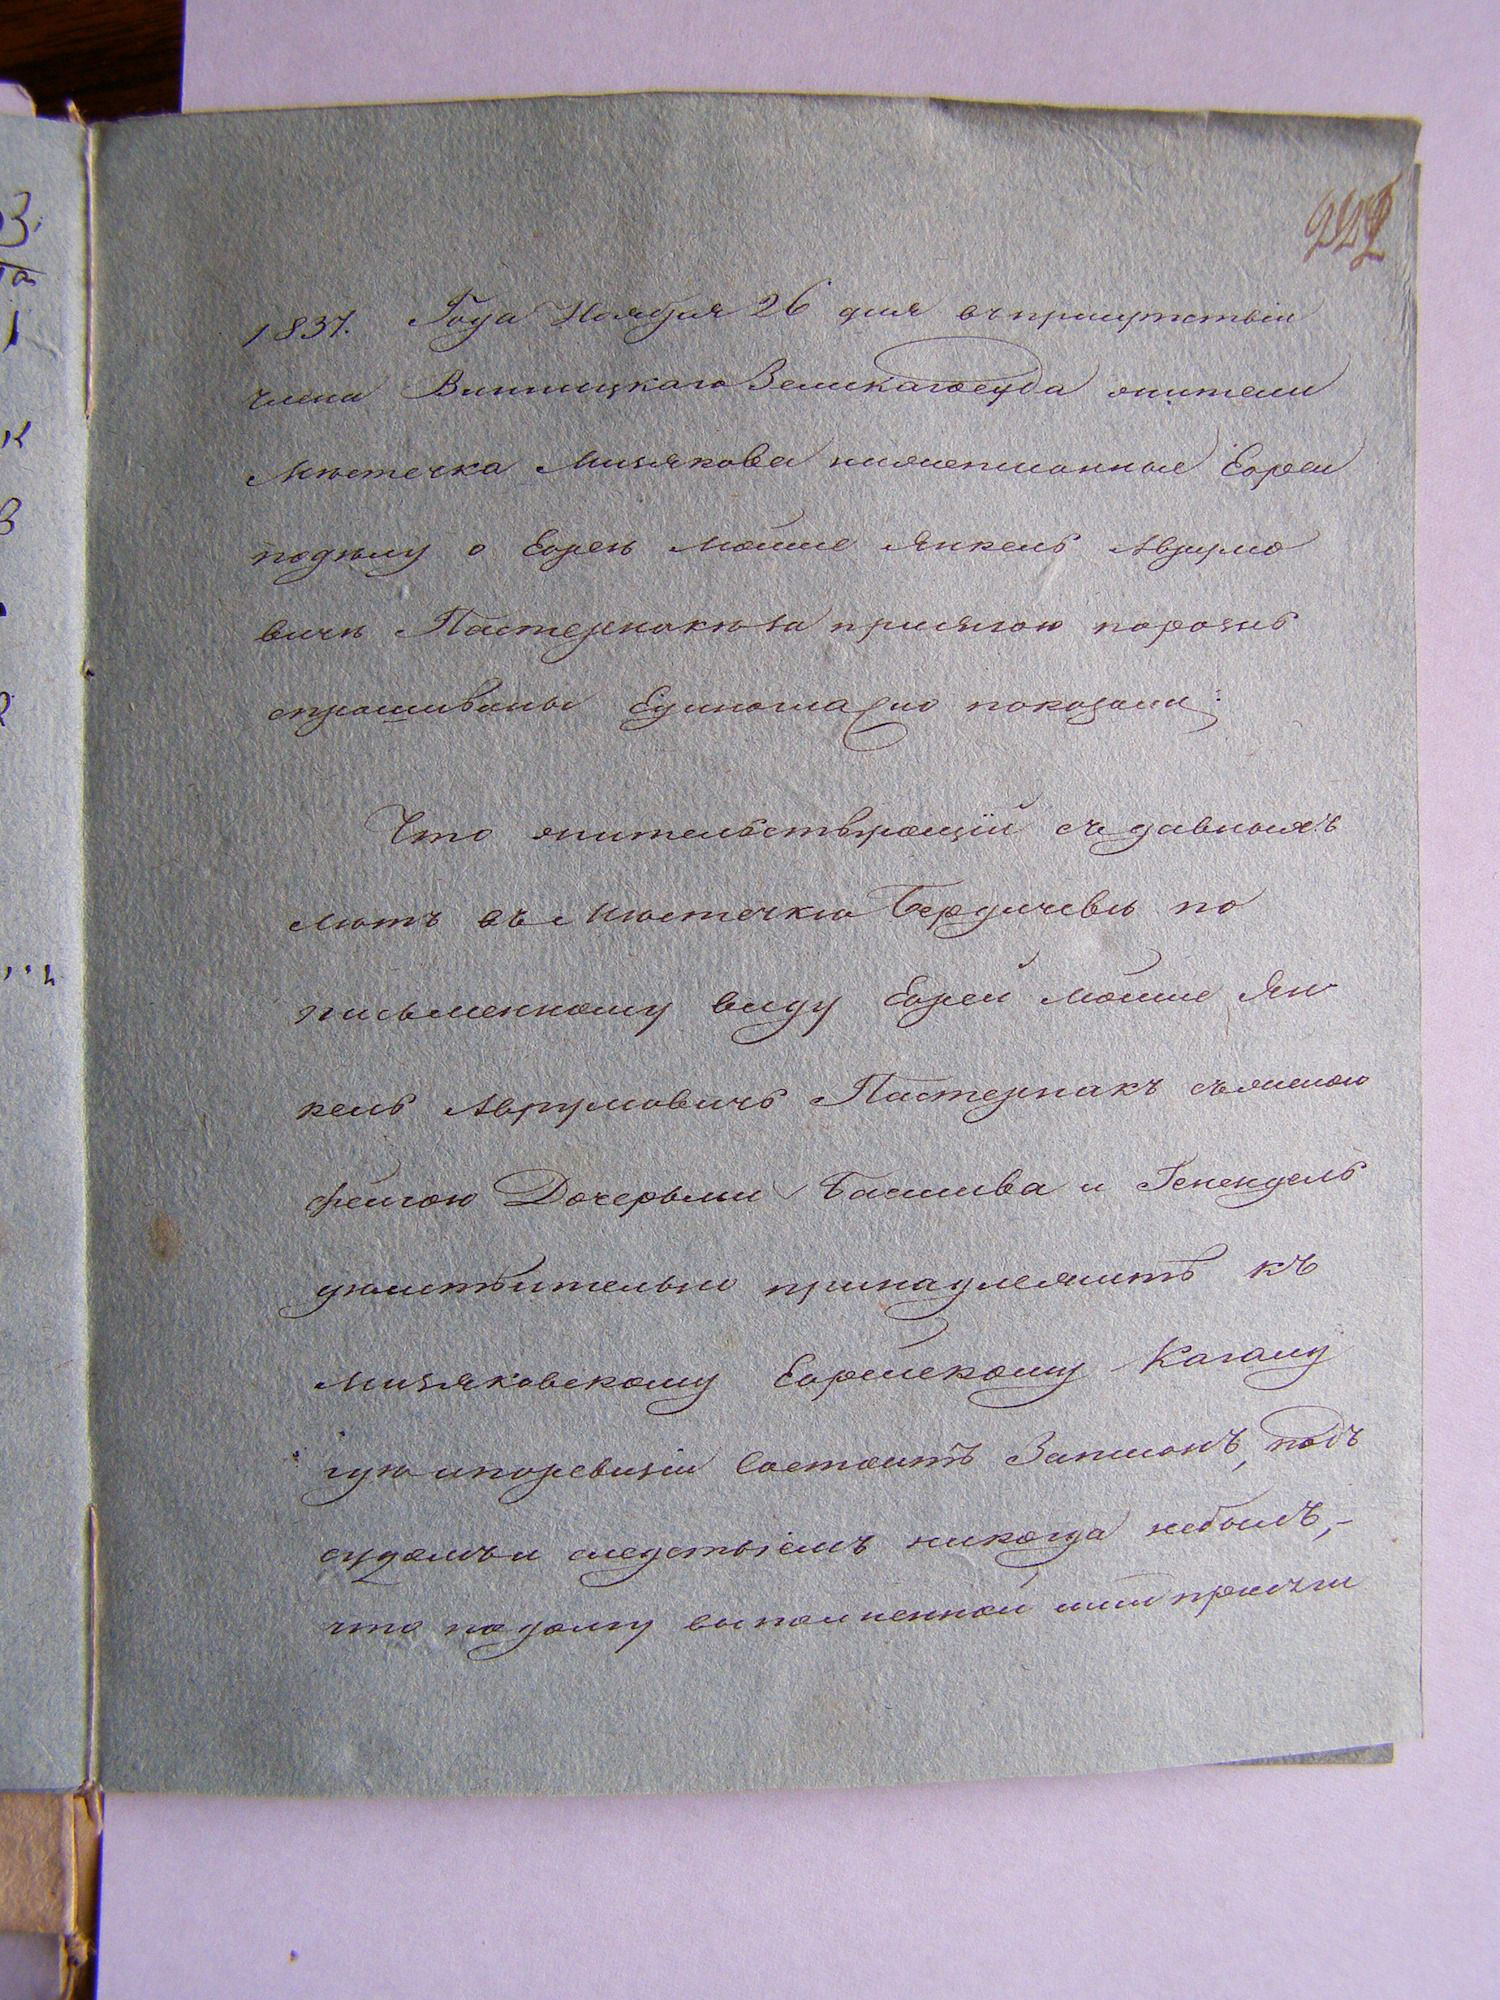 1837. Года Ноября 26 дня въ присутствіи
члена Винницкаго Земскаго суда жители
мѣстечка Мизякова нижеписанные Евреи
по дѣлу о Евреѣ Мошке Янкель Аврумо
вичѣ Пастернакѣ за присягою порознь
спрашиваны Единогласно показали:
Что жительствующій съ давныхъ
лѣтъ въ мѣстечкѣ Бердичевѣ по
письменному виду Еврей Мошке Ян
кель Аврумовичъ Пастернакъ съ женою
Фейгою Дочерьми Башива и Генендель
дѣйствительно принадлежитъ къ
Мизяковскому Еврейскому Кагалу
гдѣ и по ревизіи состоитъ Записанъ, подъ
судомъ и следствіемъ никогда небылъ,-
что по долгу выполненной нами присяги